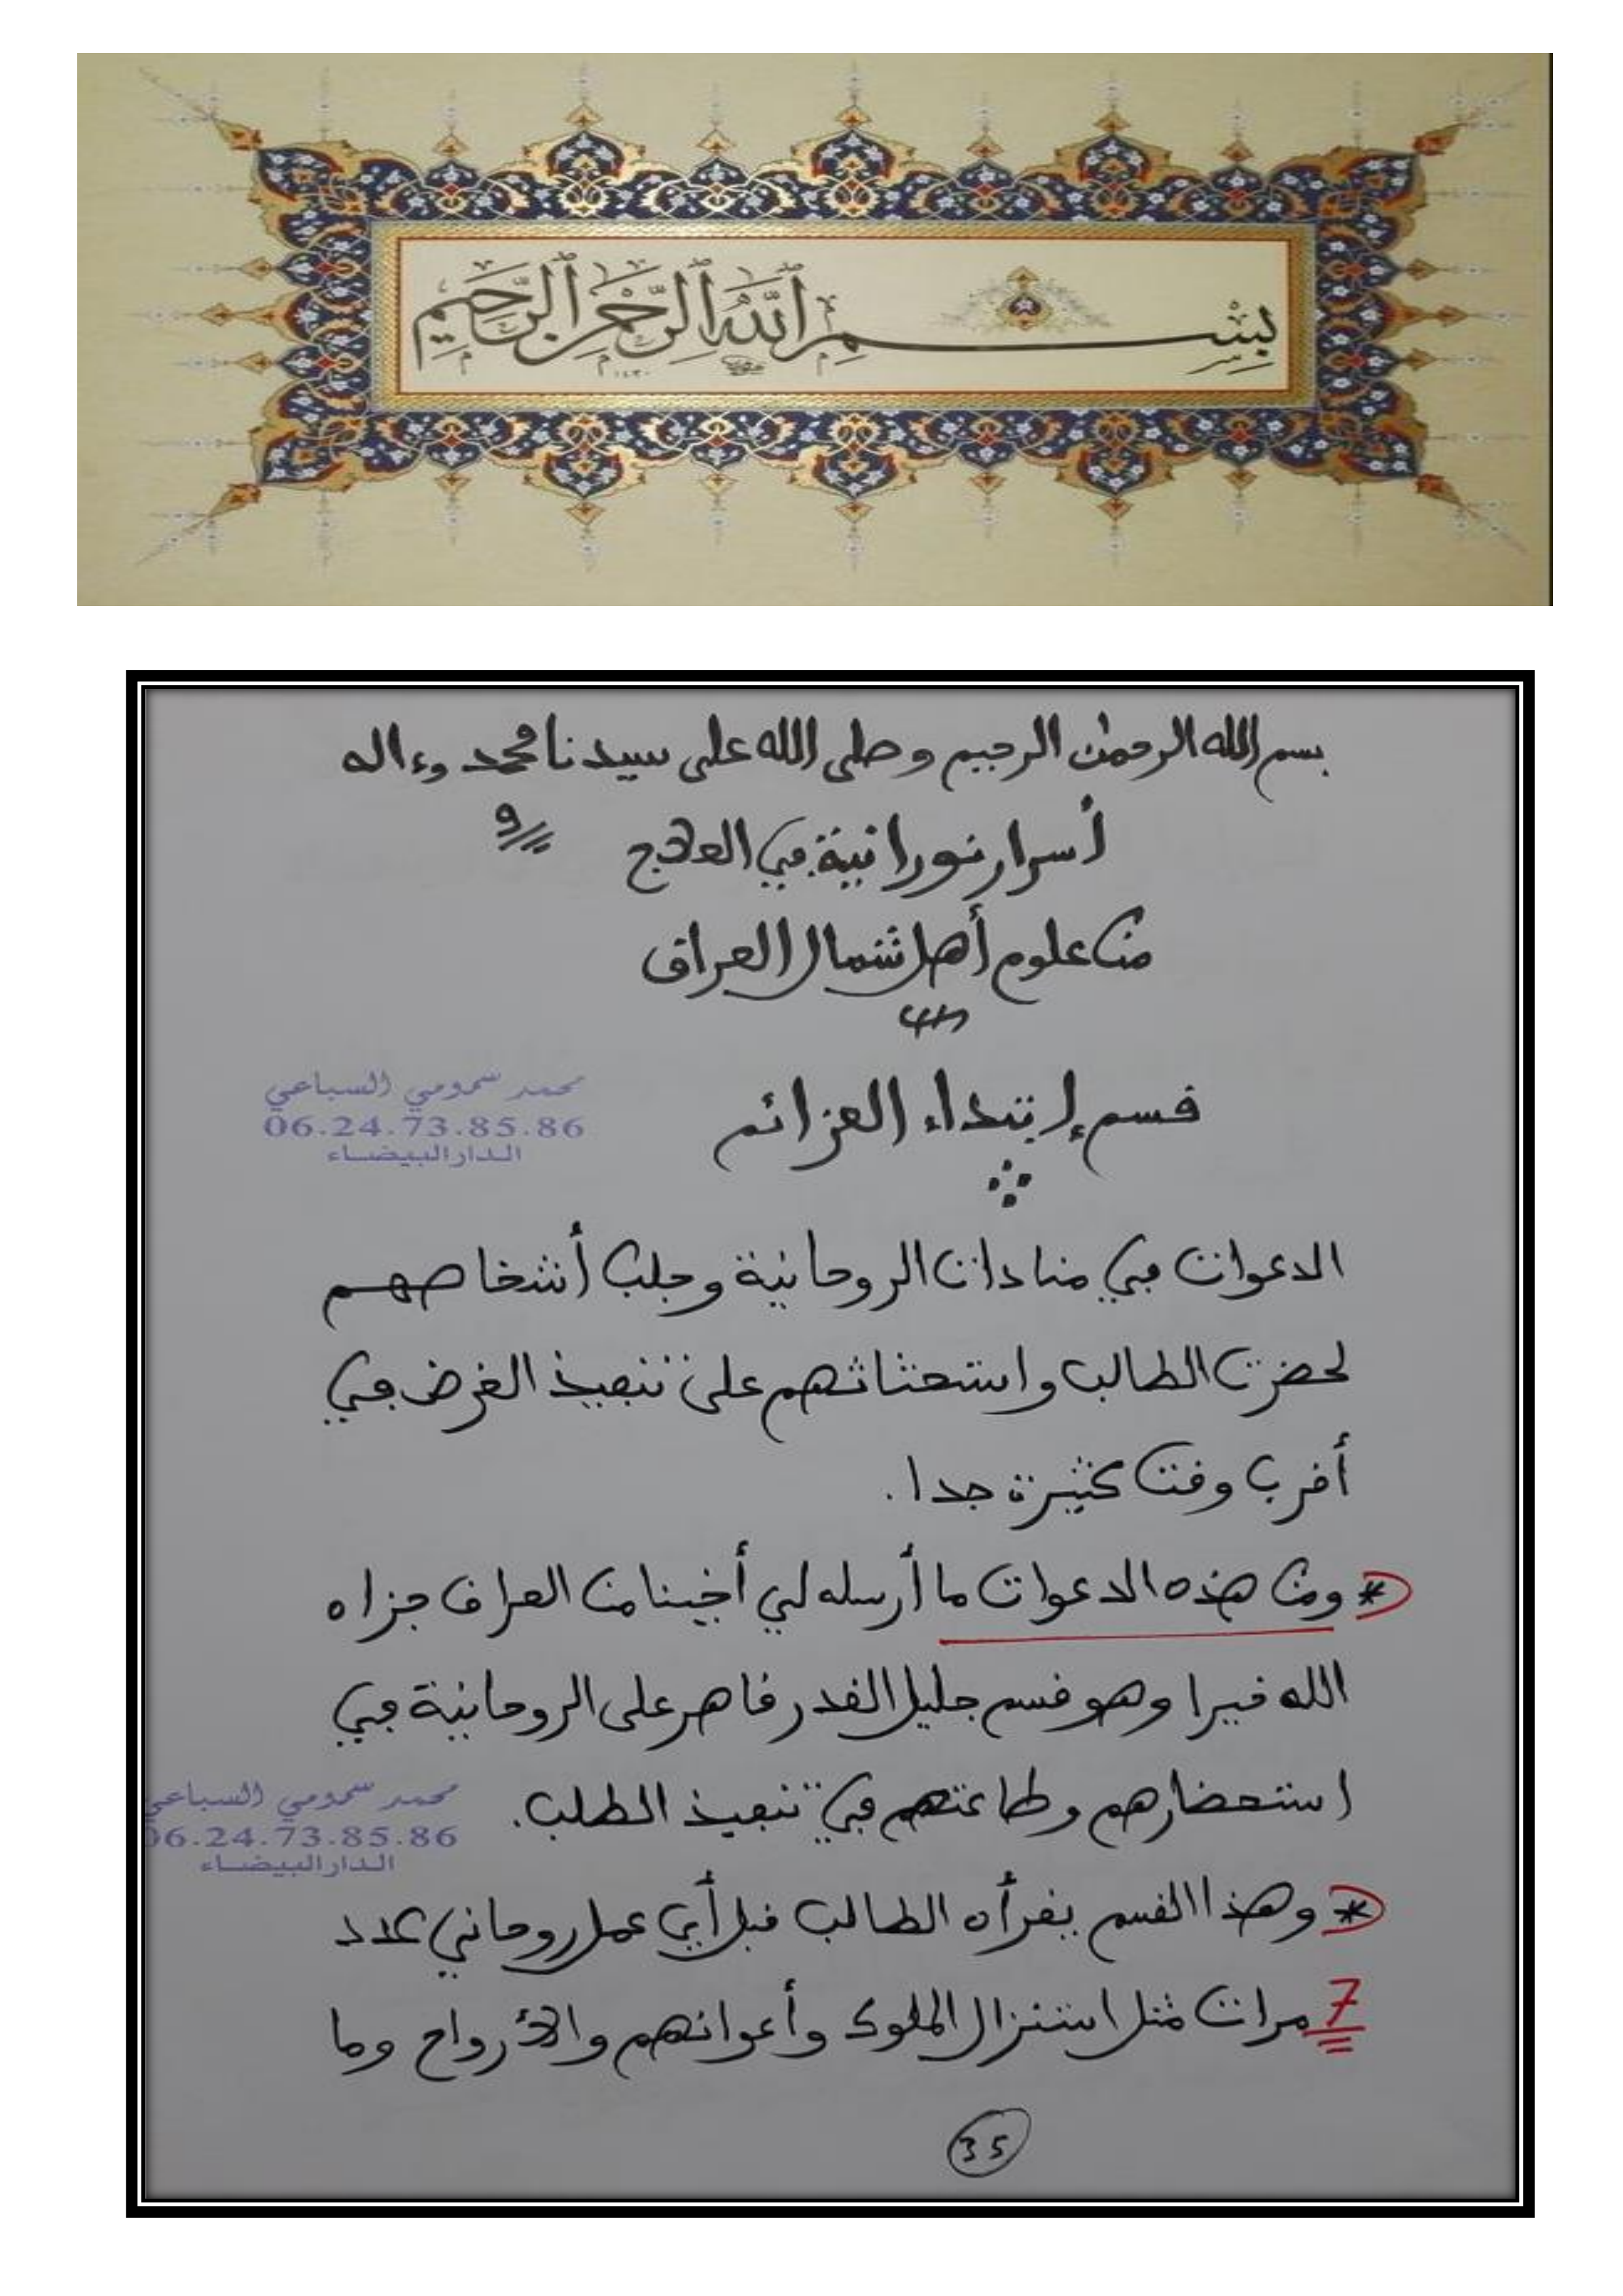 بسم الله الرحمن الرحيم
١٤٣٠
بسم الله الرحمن الرحيم وصلى الله على سيدنا محمد وءاله
أسرار نورانية في العلاج 9
من علوم أهل شمال العراق
قسم إبتداء العزائم
محمد سمومي السباعي
06.24.73.85.86
الدار البيضاء
الدعوات في منادات الروحانية وجلب أشخاصهم
لحضرت الطالب واستحثاثهم على تنفيذ الغرض في
أقرب وقت كثيرة جدا.
* ومن هذه الدعوات ما أرسله لي أخينا من العراق جزاه
الله خيرا وهو قسم جليل القدر قاهر على الروحانية في
استحضارهم وطاعتهم في تنفيذ الطلب.
محمد سمومي السباعي
06.24.73.85.86
الدار البيضاء
* وهذا القسم يقرأه الطالب قبل أي عمل روحاني عدد
7 مرات مثل استنزال الملوك وأعوانهم والأرواح وما
35